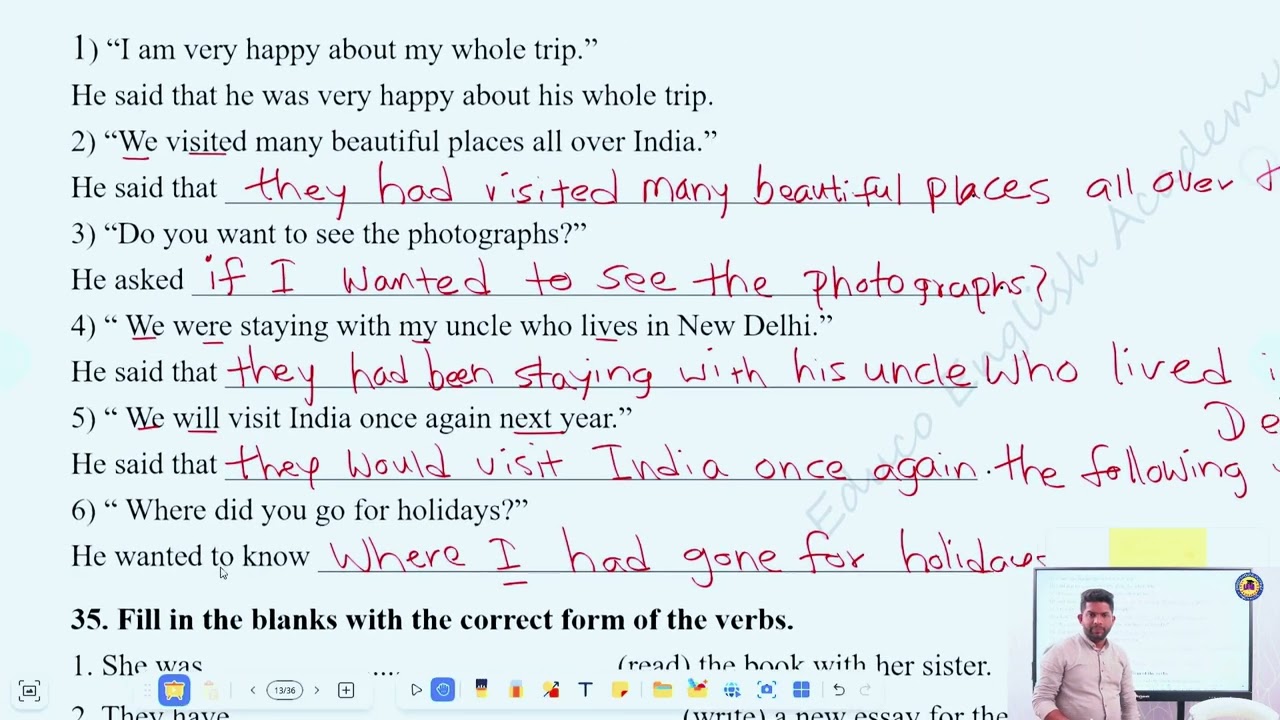 1) “I am very happy about my whole trip.”
He said that he was very happy about his whole trip.
2) “We visited many beautiful places all over India.”
He said that they had visited many beautiful places all over
3) “Do you want to see the photographs?”
He asked if I wanted to see the photographs?
4) “ We were staying with my uncle who lives in New Delhi.”
He said that they had been staying with his uncle who lived
5) “ We will visit India once again next year.”
He said that they would visit India once again. the following
6) “ Where did you go for holidays?”
He wanted to know where I had gone for holidays
35. Fill in the blanks with the correct form of the verbs.
1. She was .... (read) the book with her sister.
2. They have (write) a new essay for the
Educo English Academy
13/36